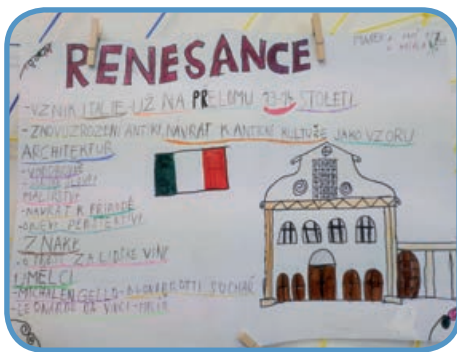 RENESANCE
MAREK
-VZNIK ITALIE UŽ NA PRELOMU 13-14 STOLETÍ
-ZNOVUZROZENÍ ANTIKY NÁVRAT K ANTICKÉ KULTUŘE JAKO VZORU
ARCHITEKTUR
MALÍŘSTVÍ
-NÁVRAT K PŘÍRODĚ
-OBJEV PERSPEKTIVY
ZNAKY
ZA LIDSKÉ
UMĚLCI
-MICHALENGELLO-BUONAROTTI SOCHAŘ
-LEONARDO DA VINCI-MALÍŘ